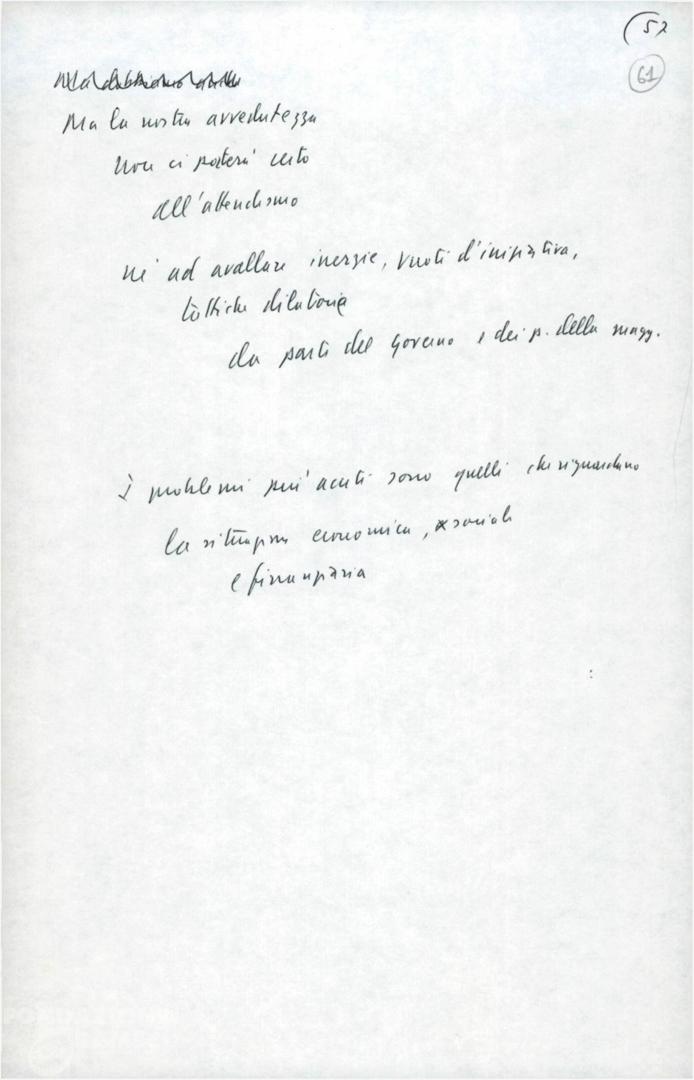 52
61
Ma la nostra avvedutezza
non ci porterà certo
all'attendismo
né ad avallare inerzie, vuoti d'iniziativa,
tattiche dilatorie
da parte del governo e dei p. della magg.
I problemi più acuti sono quelli che riguardano
la situazione economica, sociale
e finanziaria